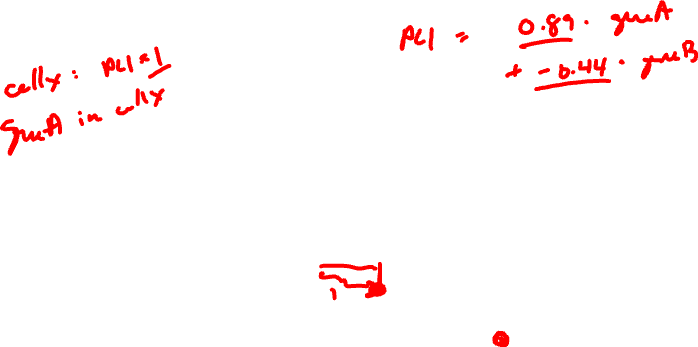 cell x : PC1 = 1
gene A in cell x
PC1 = 0.89 . gene A
+ -0.44 . gene B
1